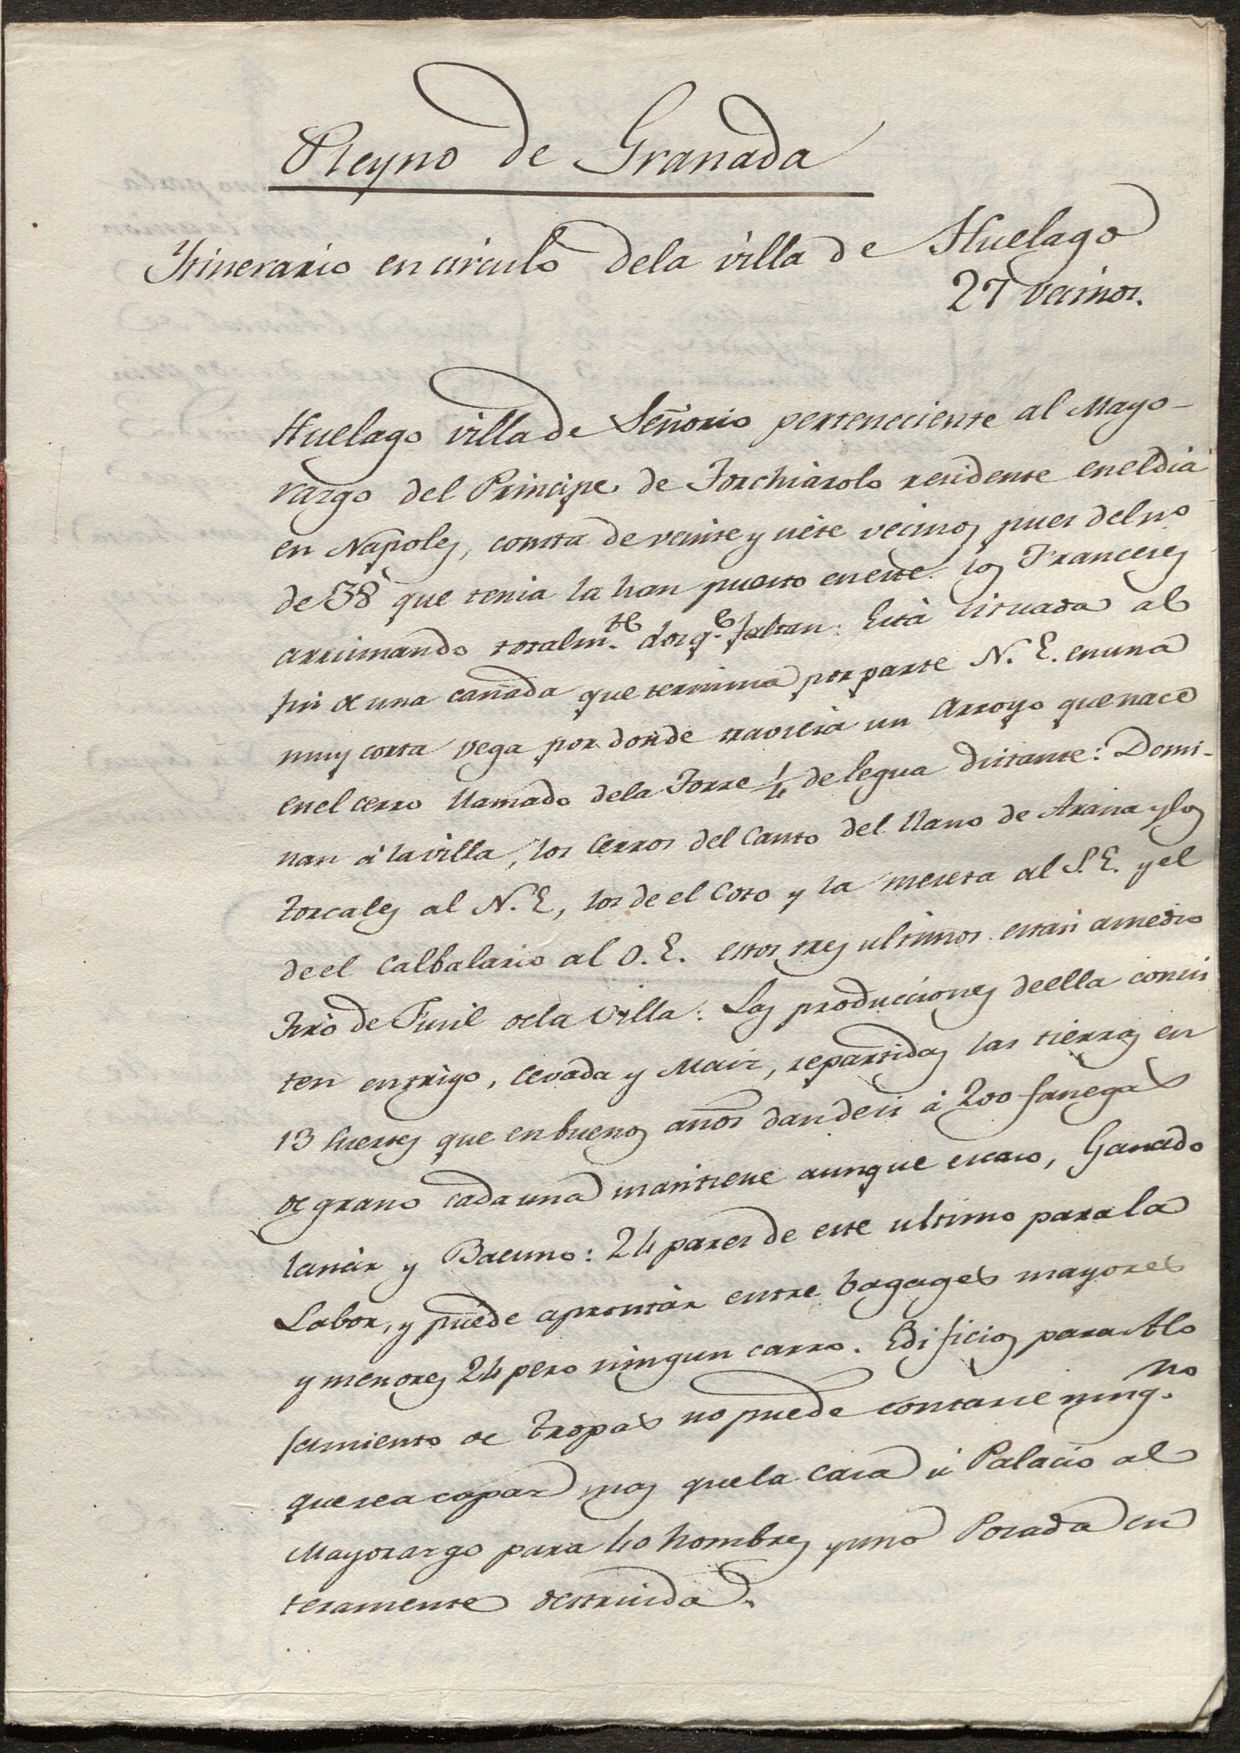 Reyno de Granada
Ytinerario en circulo dela villa de Huelago
27 vecinos.
Huelago villa de Señorio perteneciente al Mayo-
razgo del Principe de Torchiarolo residente eneldia
en Napoles, consta de veinte y siete vecinos pues del no
de 38 que tenia la han puesto en este los Franceses
arruinando totalmte. los q.e faltan: Está situada al
fin de una cañada que termina por parte N.E. en una
muy corta vega por donde traviesa un Arroyo que nace
en el cerro llamado dela Torre 1/4 de legua distante: Domi-
nan á la villa, los Cerros del Canto del llano de Araña y los
Torcales al N.E, los de el Coto y la meseta al S.E. y el
de el Calbalario al O.E. estos tres ultimos estan amedio
tiro de Fusil de la Villa: Las producciones de ella consis
ten en trigo, cevada y Maiz, repartidas las tierras en
13 suertes que en buenos años dan de si á 200 fanegas
de grano cada una mantiene aunque escaso, Ganado
lanár y Bacuno: 24 pares de este ultimo para la
Labor, y puede aprontár entre bagages mayores
y menores 24 pero ningun carro. Edificios para Alo
jamiento de tropas no puede contarse ning.no
que sea capaz mas que la casa ú Palacio del
Mayorazgo para 40 hombres y una Posada en
teramente destruida.